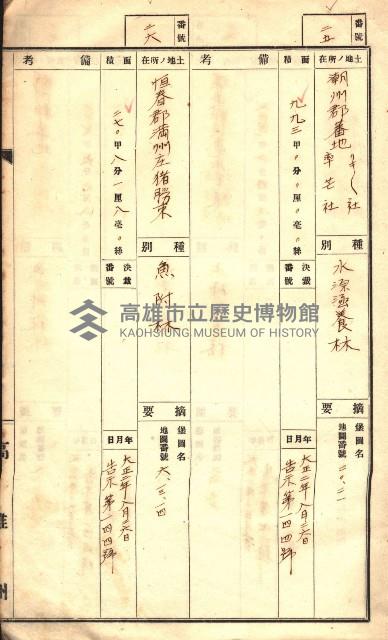 番號
二五
土地ノ所在
潮州郡蕃地
リキリキ社
率芒社
種別
水源涵養林
摘要
堡圖名
地圖番號
二〇、二一
面積
九九三甲〇分〇厘〇毫〇絲
決裁番號
年月日
大正二年八月二六日
告示第一四四號
備考
番號
二六
土地ノ所在
恒春郡滿州庄豬朥束
種別
魚附林
摘要
堡圖名
地圖番號
六、三、四
面積
二七〇甲八分一厘八毫〇絲
決裁番號
年月日
大正二年八月二六日
告示第一四四號
備考
高雄州
高雄市立歷史博物館
KAOHSIUNG MUSEUM OF HISTORY